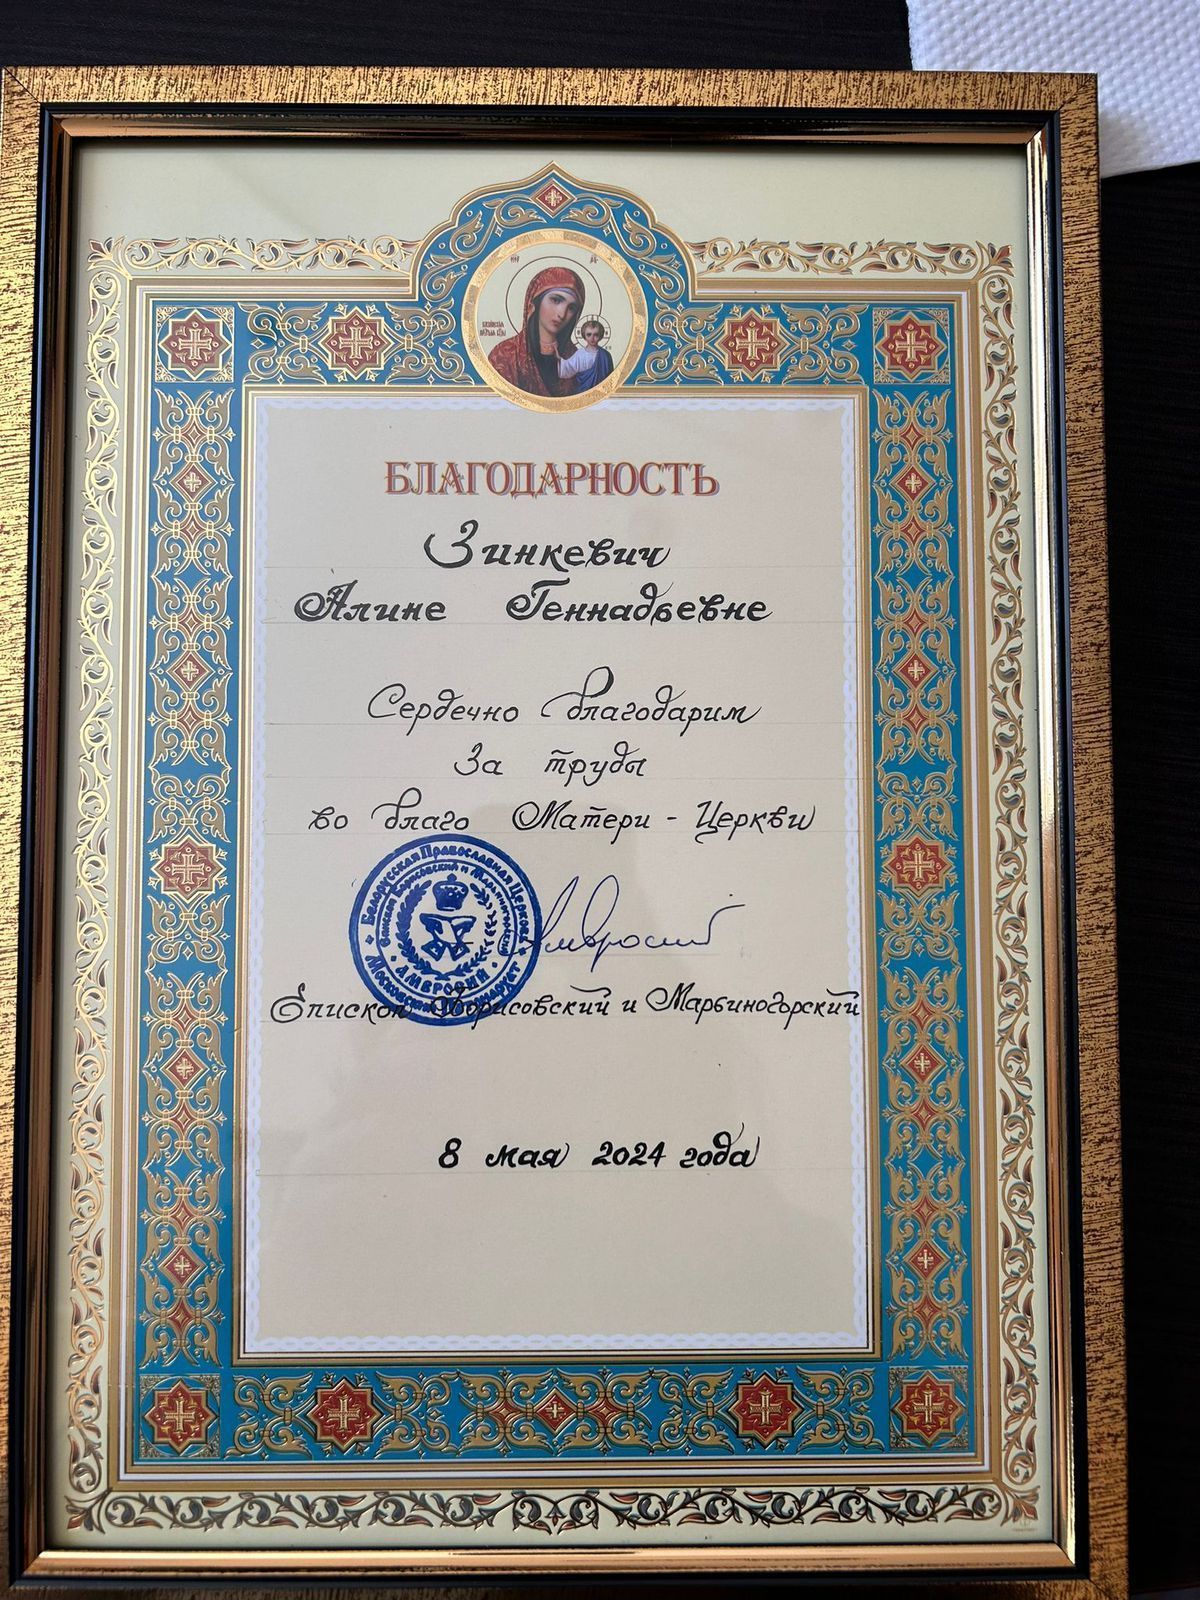 БЛАГОДАРНОСТЬ
Зинкевич
Алине Геннадьевне
Сердечно благодарим
За труды
во благо Матери - Церкви
Белорусская Православная Церковь
Московский
АМВРОСИЙ
Амвросий
Епископ Борисовский и Марьиногорский
8 мая 2024 года